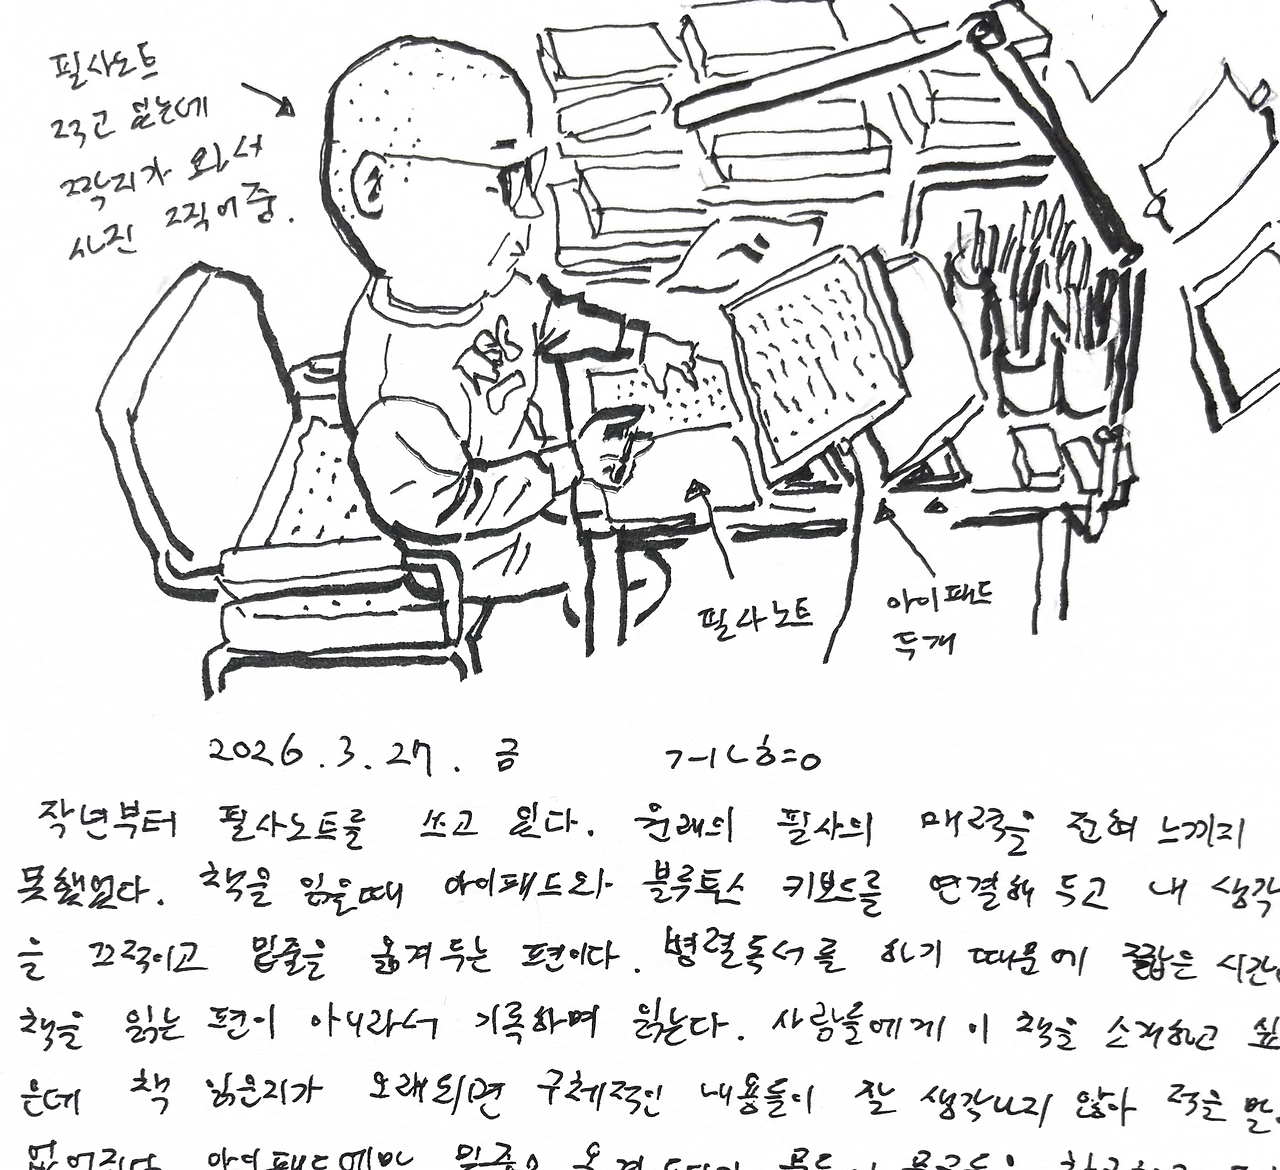 필사노트
적고 있는데
짝지가 와서
사진 찍어줌.
필사노트
아이패드
두개
2026.3.27. 금
작년부터 필사노트를 쓰고 있다. 원래의 필사의 매력을 전혀 느끼지
못했었다. 책을 읽을때 아이패드와 블루투스 키보드를 연결해 두고 내 생각
을 끄적이고 밑줄을 옮겨두는 편이다. 병렬독서를 하기 때문에 짧은
책을 읽는 편이 아니라서 기록하며 읽는다. 사람들에게 이 책을 소개하고 싶
은데 책 읽은지가 오래되면 구체적인 내용들이 잘 생각나지 않아 적을